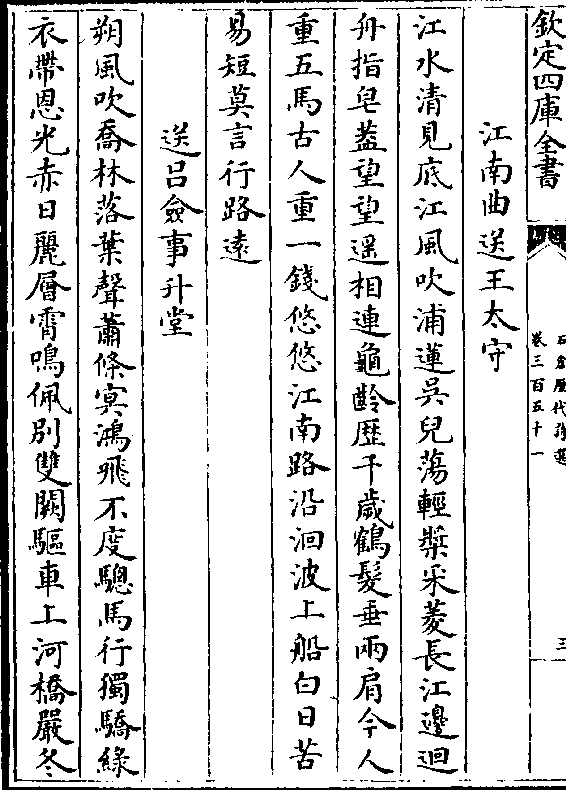 欽定四庫全書
石倉歷代詩選
卷三百五十一
三
江南曲送王太守
江水清見底江風吹浦蓮吳兒蕩輕槳采菱長江邊迴
舟指皂蓋望望遥相連龜齡歴千歲鶴髮垂兩肩今人
重五馬古人重一錢悠悠江南路沿洄波上船白日苦
易短莫言行路遠
送吕僉事升堂
朔風吹喬林落葉聲蕭條㝠鴻飛不度驄馬行獨驕緑
衣帶恩光赤日麗層霄鳴佩别雙闕驅車上河橋嚴冬